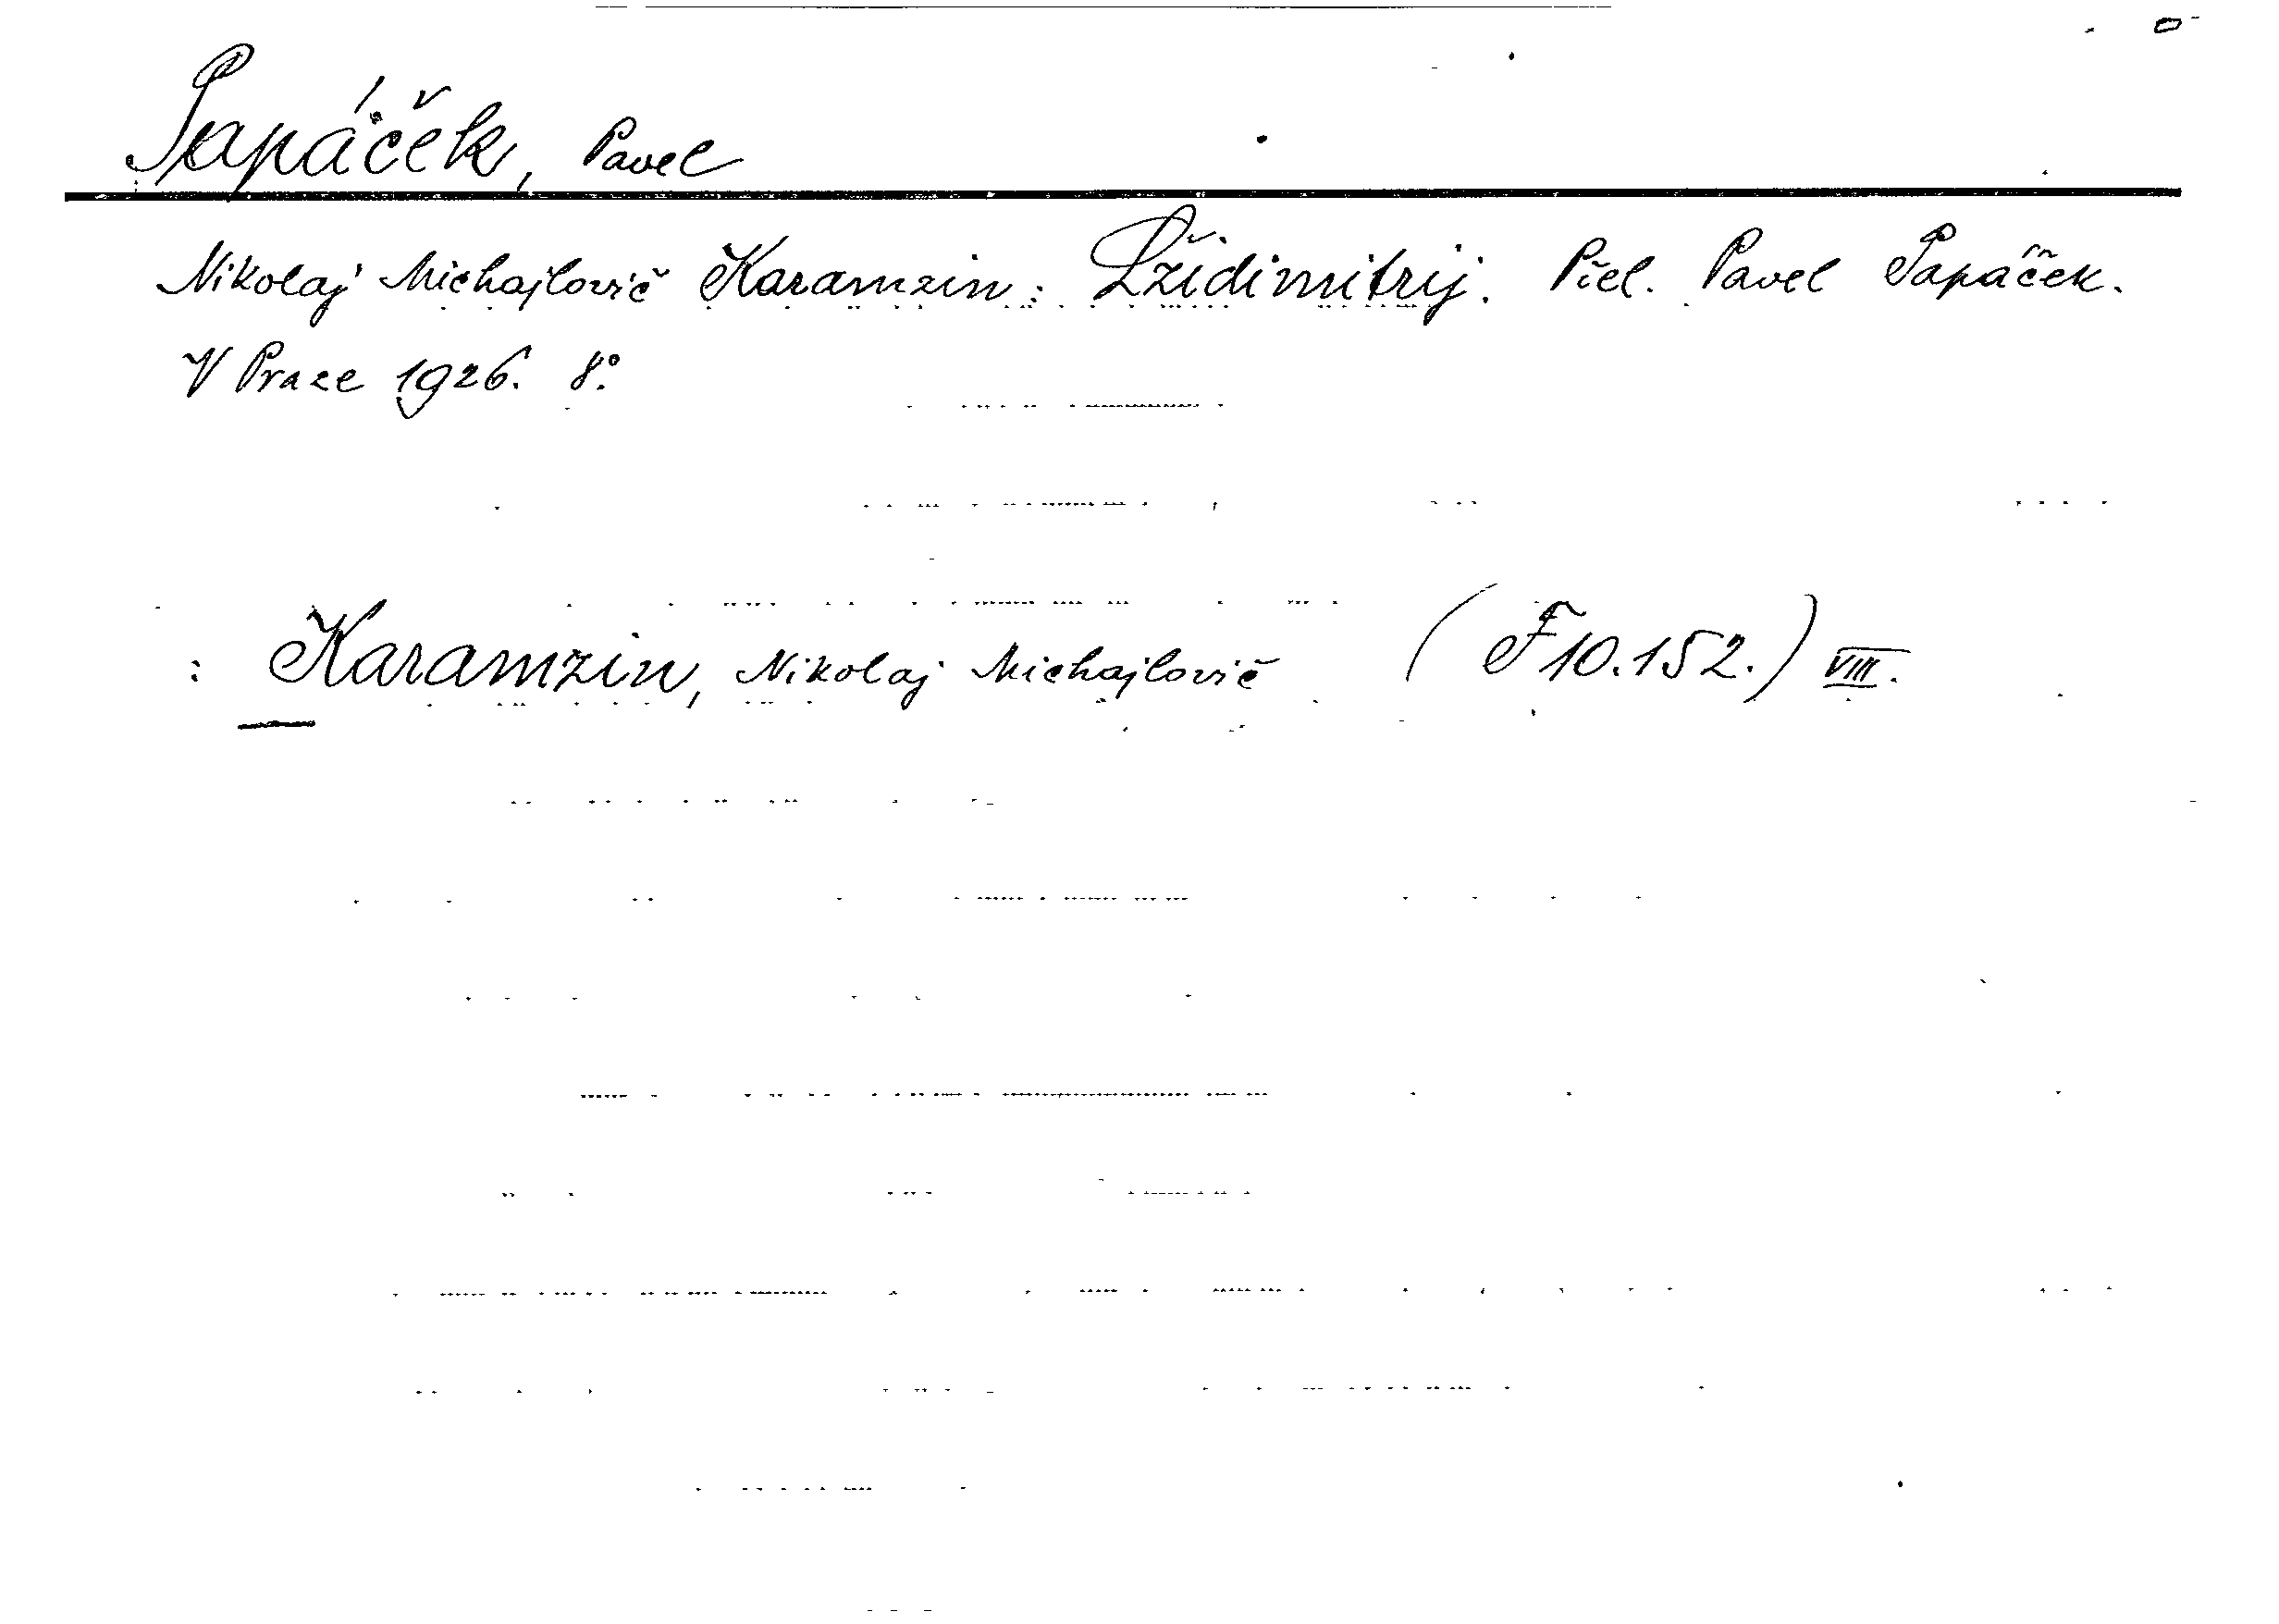 Papáček, Pavel
Nikolaj Michajlovič Karamzin: Lžidimitrij. Přel. Pavel Papáček.
V Praze 1926. 8°.
: Karamzin, Nikolaj Michajlovič (F 10.152.) VIII.